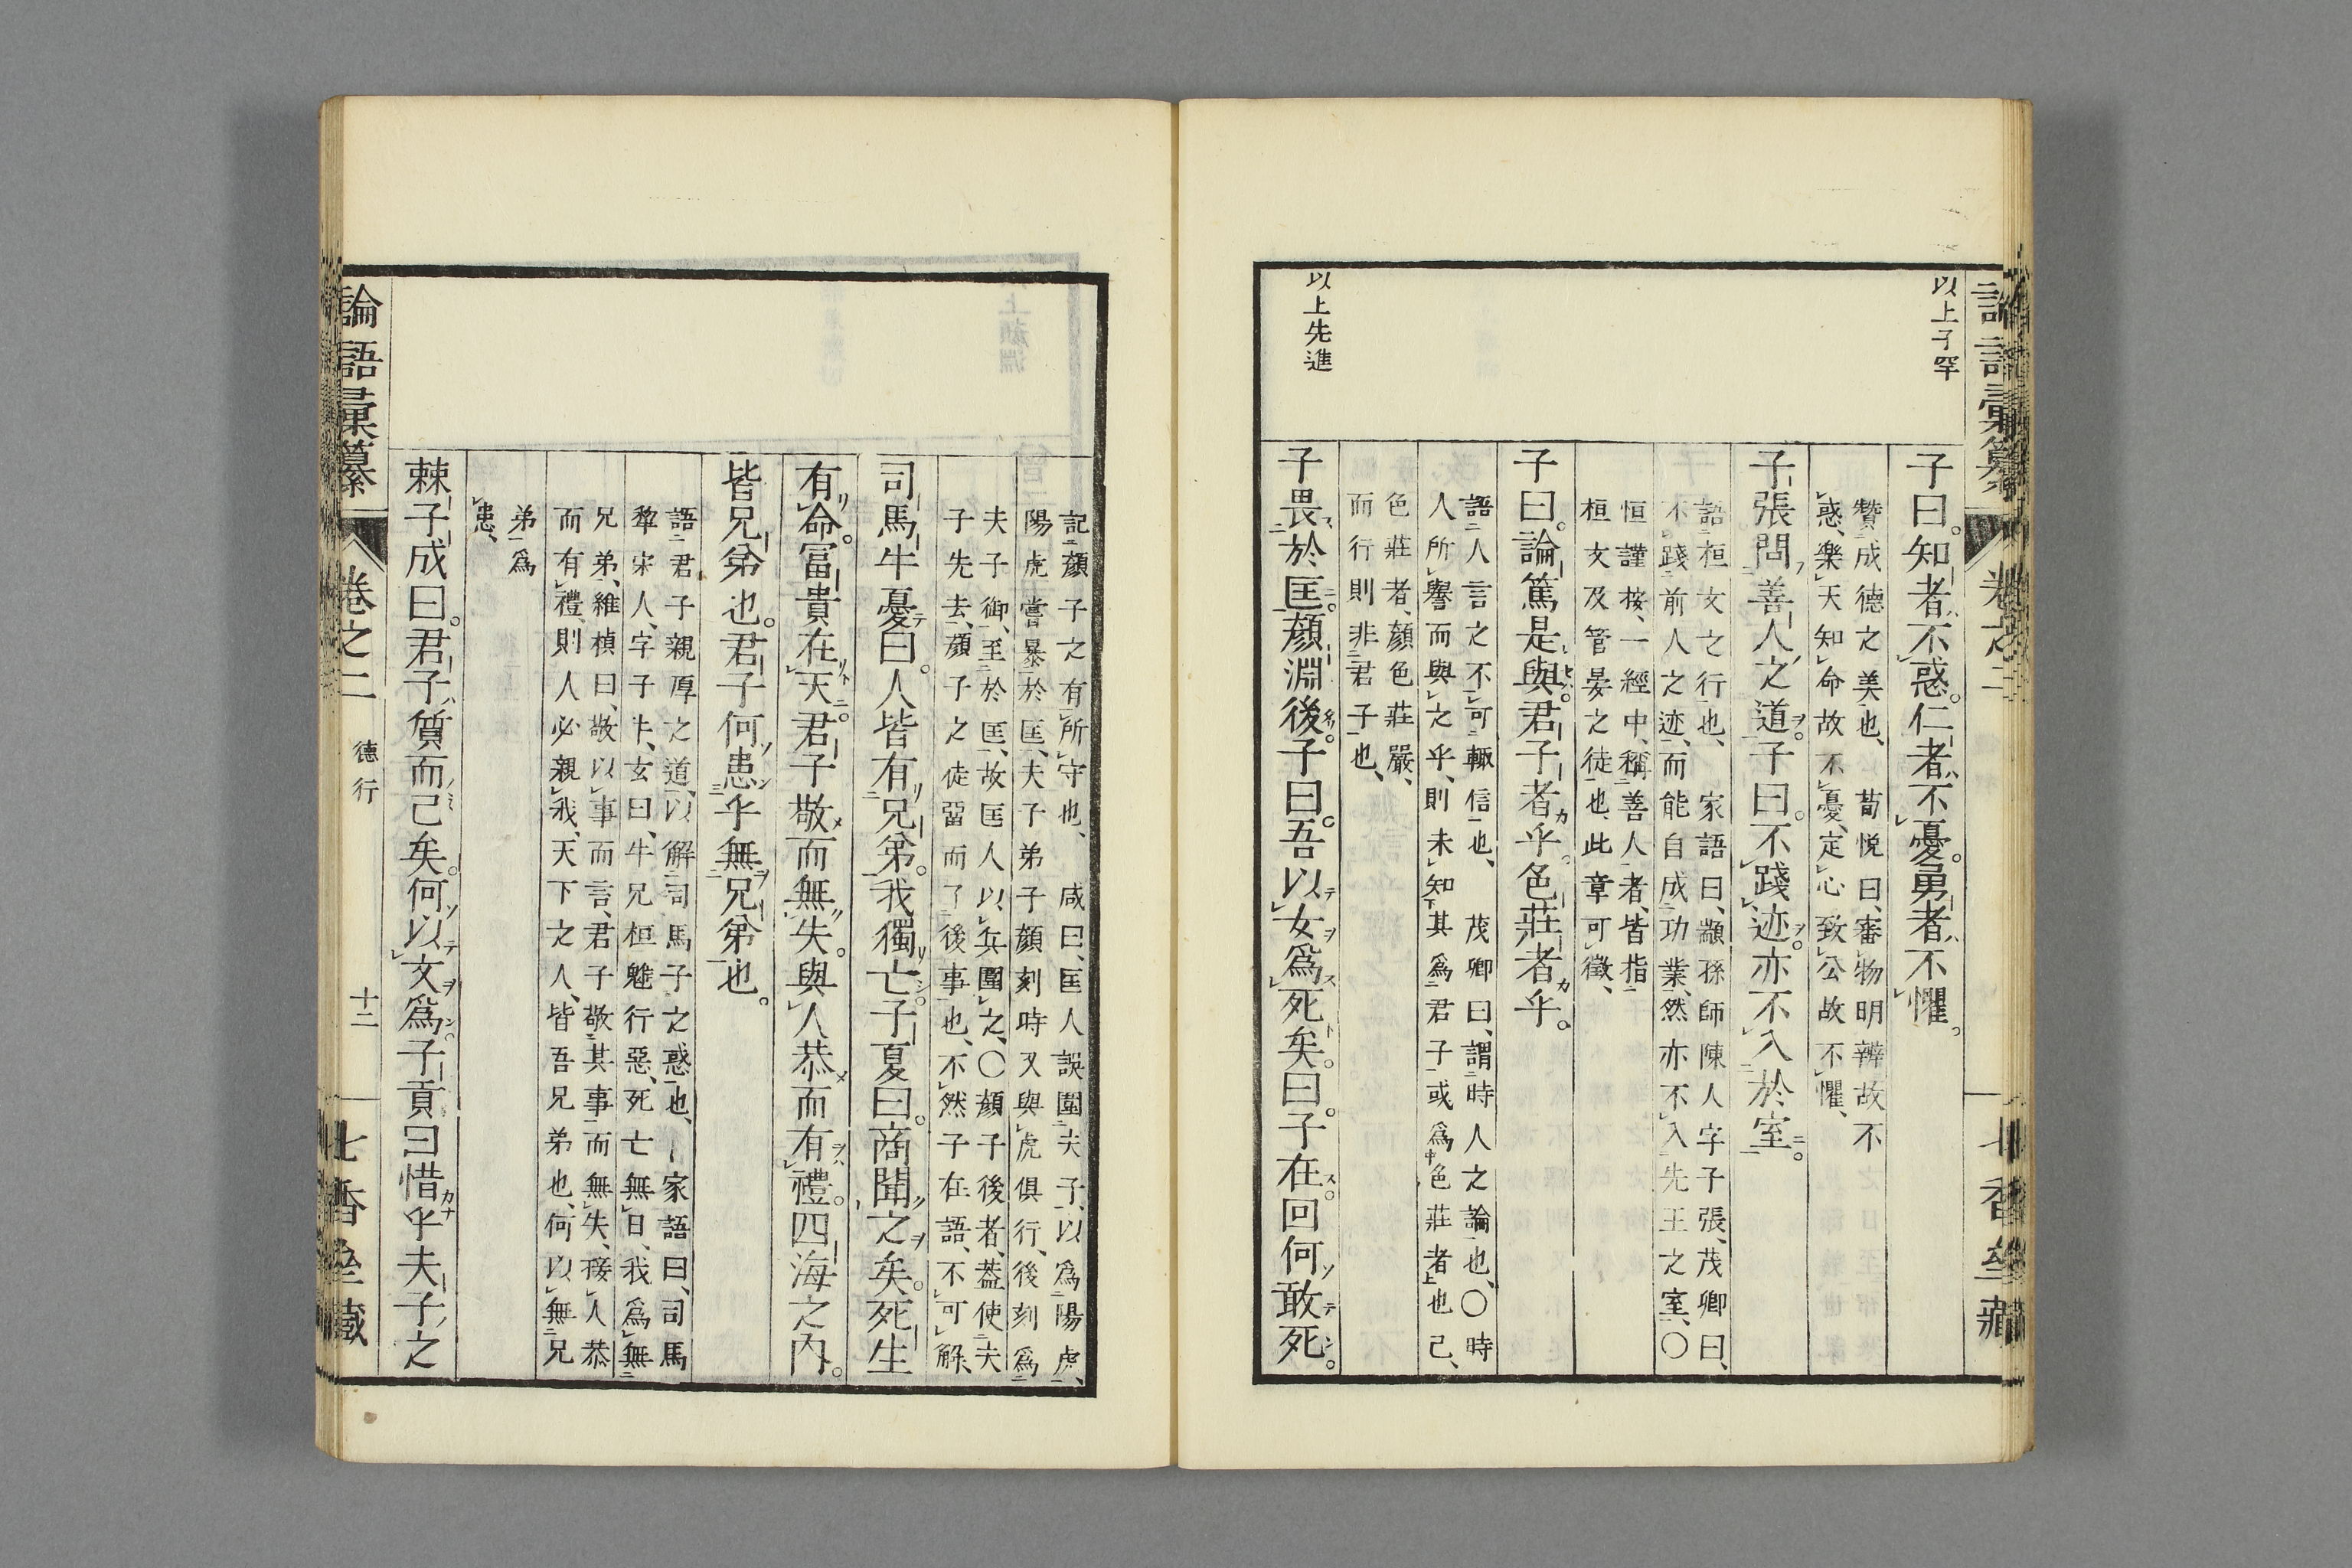 以上子罕
子曰。知者不惑。仁者不憂。勇者不懼。
贊成德之美也、荀悅曰、審物明辨故不
惑、樂天知命故不憂、定心致公故不懼、
子張問善人之道。子曰。不踐迹。亦不入於室。
語桓文之行也、家語曰、顓孫師陳人字子張、茂卿曰、
不踐前人之迹、而能自成功業、然亦不入先王之室、〇
恒謹按、一經中、稱善人者、皆指
桓文及管晏之徒也、此章可徵、
子曰。論篤是與。君子者乎。色莊者乎。
語人言之不可輒信也、茂卿曰、謂時人之論也、〇時
人所譽而與之乎、則未知其爲君子或爲色莊者也已、
色莊者、顏色莊嚴、
而行則非君子也、
以上先進
子畏於匡。顏淵後。子曰。吾以女爲死矣。曰。子在。回何敢死。
記顏子之有所守也、咸曰、匡人誤圍夫子、以爲陽虎、
陽虎嘗暴於匡、夫子弟子顏刻時又與虎俱行、後刻爲
夫子御、至於匡、故匡人以兵圍之、〇顏子後者、蓋使夫
子先去、顏子之徒畱而了後事也、不然子在語、不可解、
司馬牛憂曰。人皆有兄弟。我獨亡。子夏曰。商聞之矣。死生
有命。富貴在天。君子敬而無失。與人恭而有禮。四海之內。
皆兄弟也。君子何患乎無兄弟也。
語君子親厚之道、以解司馬子之惑也、家語曰、司馬
犂宋人、字子牛、玄曰、牛兄桓魋行惡、死亡無日、我爲無
兄弟、維楨曰、敬以事而言、君子敬其事而無失、接人恭
而有禮、則人必親我、天下之人、皆吾兄弟也、何以無兄
弟爲
患、
棘子成曰。君子質而已矣。何以文爲。子貢曰惜乎夫子之
論語彙纂
卷之二
德行
十二
七香壘藏